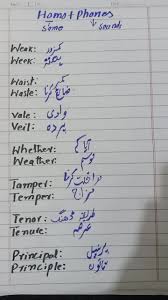 Homo + phones
Same sounds
Weak: کمزور
Week: ہفتہ
Waist: کمر
Waste: ضائع کرنا
Vale: وادی
Veil: پردہ
Whether: آیا کہ
Weather: موسم
Tamper: مداخلت کرنا
Temper: مزاج
Tenor:
Tenure:
Principal: پرنسپل
Principle: قانون